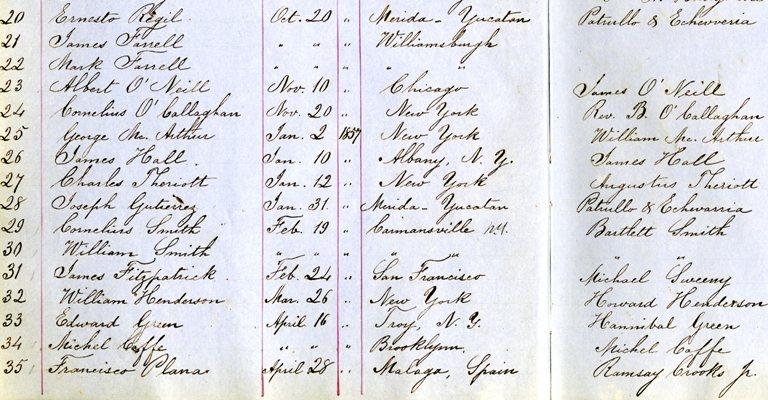 20 Ernesto Regil Oct. 20 " Merida - Yucatan Patrullo & Echevveria
21 James Farrell " " " Williamsburgh
22 Mark Farrell " " " "
23 Albert O'Neill Nov. 10 " Chicago James O'Neill
24 Cornelius O'Callaghan Nov. 20 " New York Rev. B. O'Callaghan
25 George Mc. Arthur Jan. 2 1857 New York William Mc. Arthur
26 James Hall Jan. 10 " Albany, N. Y. James Hall
27 Charles Theriott Jan. 12 " New York Augustus Theriott
28 Joseph Gutierrez Jan. 31 " Merida - Yucatan Patrullo & Echevarria
29 Cornelius Smith Feb. 19 " Carmansville N.Y. Bartlett Smith
30 William Smith " " " " "
31 James Fitzpatrick Feb. 24 " San Francisco Michael Sweeny
32 William Henderson Mar. 26 " New York Howard Henderson
33 Edward Green April 16 " Troy, N. Y. Hannibal Green
34 Michel Caffe " " " Brooklynn. Michel Caffe
35 Francisco Plana April 28 " Malaga, Spain Ramsay Crooks Jr.